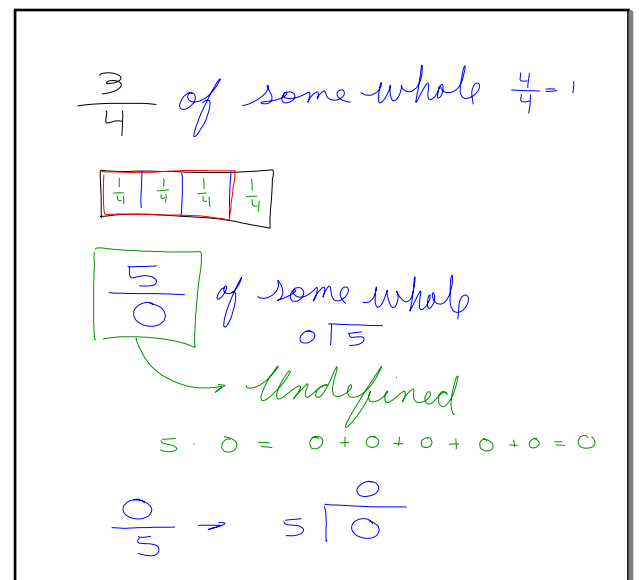 3/4 of some whole 4/4 = 1
1/4 1/4 1/4 1/4
5/0 of some whole
0⟌5
Undefined
5 · 0 = 0 + 0 + 0 + 0 + 0 = 0
0/5 → 5⟌0 0